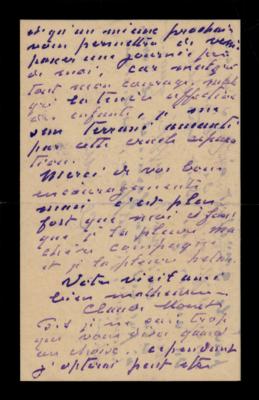 et qu'un mieux prochain
vous permettra de venir
passer une journée près
de moi, car malgré
tout mon courage,
la tendre affection
des enfants, je me
sens terrassé anéanti
par cette cruelle sépara
tion.
Merci de vos bons
encouragements
mais c'est plus
fort que moi il faut
que je la pleure ma
chère compagne
et je la pleure hélas.
Votre vieil ami
bien malheureux
Claude Monet
P.S. je ne sais trop
que vous dire quand
au choix.. cependant
j'opterai peut être